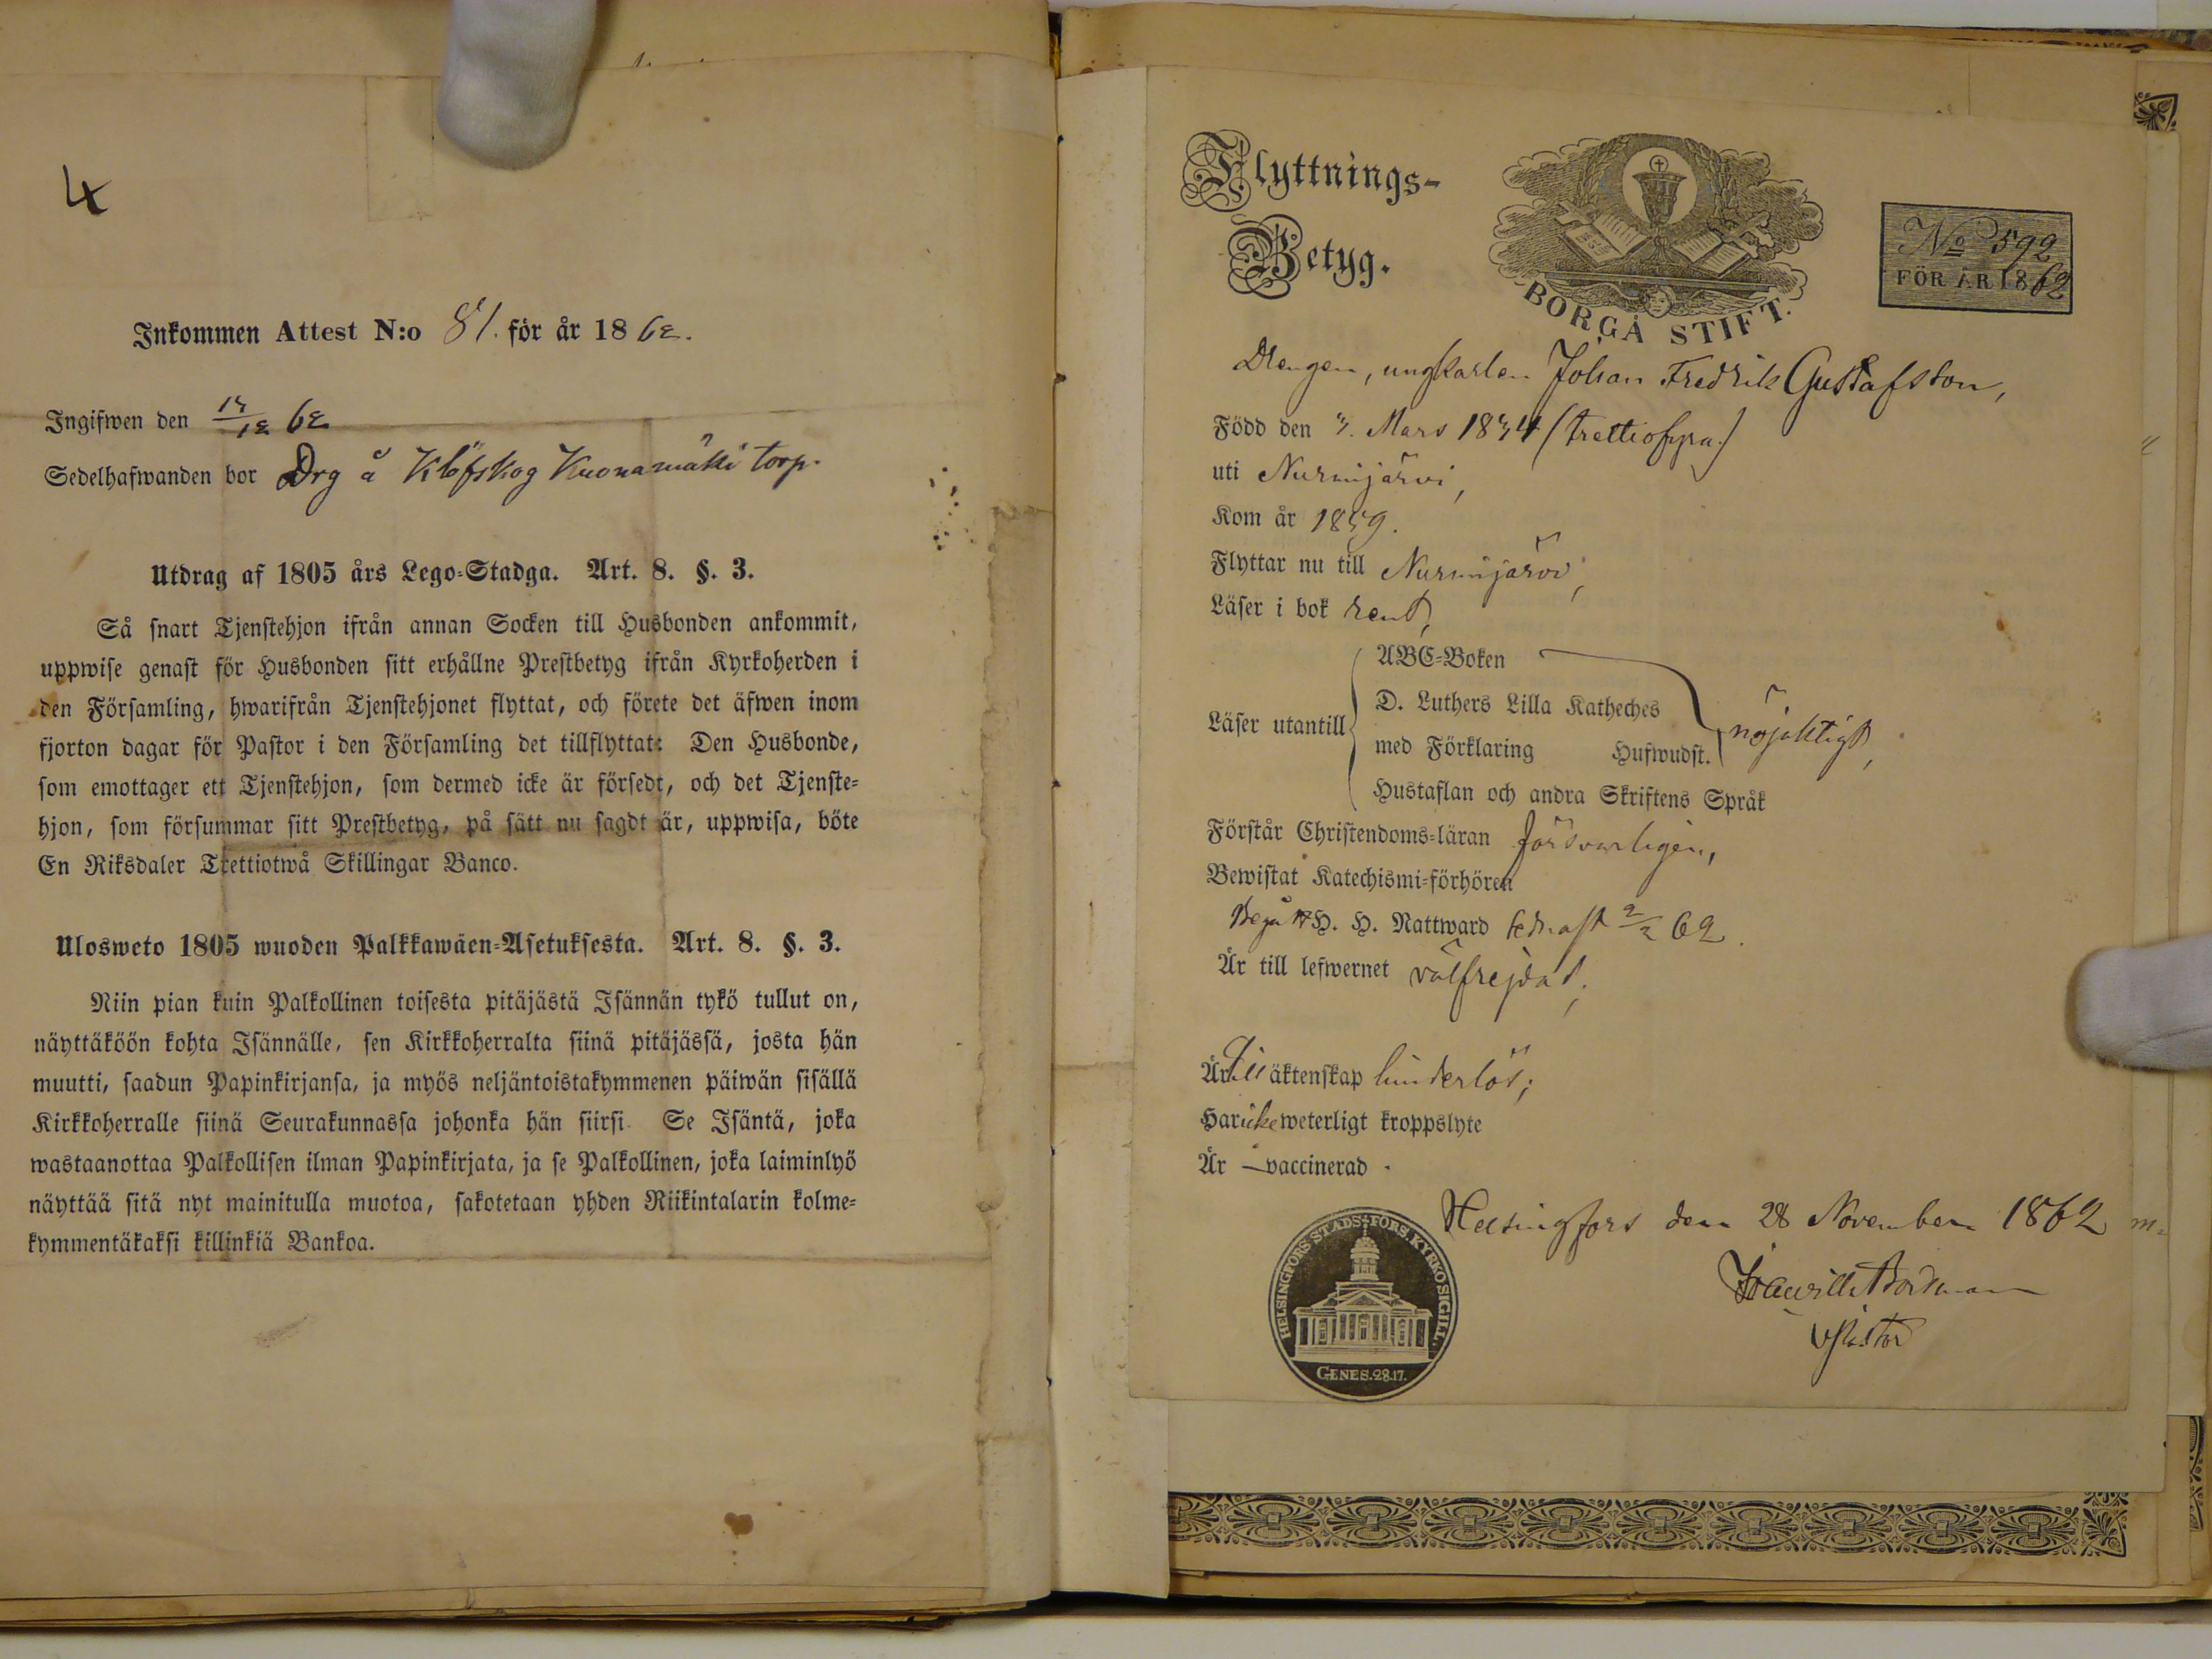 4
Inkommen Attest N:o 81. för år 1862.
Ingifwen den 14/12 62
Sedelhafwanden bor Drg å Klöfskog Kuonamäki torp.
Utdrag af 1805 års Lego-Stadga. Art. 8. §. 3.
Så snart Tjenstehjon ifrån annan Socken till Husbonden ankommit,
uppwise genast för Husbonden sitt erhållne Prestbetyg ifrån Kyrkoherden i
den Församling, hwarifrån Tjenstehjonet flyttat, och förete det äfwen inom
fjorton dagar för Pastor i den Församling det tillflyttat: Den Husbonde,
som emottager ett Tjenstehjon, som dermed icke är försedt, och det Tjenste-
hjon, som försummar sitt Prestbetyg, på sätt nu sagdt är, uppwisa, böte
En Riksdaler Trettiotwå Skillingar Banco.
Ulosweto 1805 wuoden Palkkawäen-Asetuksesta. Art. 8. §. 3.
Niin pian kuin Palkollinen toisesta pitäjästä Isännän tykö tullut on,
näyttäköön kohta Isännälle, sen Kirkkoherralta siinä pitäjässä, josta hän
muutti, saadun Papinkirjansa, ja myös neljäntoistakymmenen päiwän sisällä
Kirkkoherralle siinä Seurakunnassa johonka hän siirsi. Se Isäntä, joka
wastaanottaa Palkollisen ilman Papinkirjata, ja se Palkollinen, joka laiminlyö
näyttää sitä nyt mainitulla muotoa, sakotetaan yhden Riikintalarin kolme-
kymmentäkaksi killinkiä Bankoa.
Flyttnings-
Betyg.
BORGÅ STIFT.
No 592
FÖR ÅR 1862
Drengen, ungkarlen Johan Fredrik Gustafsson,
Född den 3. Mars 1834 (trettiofyra)
uti Nurmijärvi,
Kom år 1859.
Flyttar nu till Nurmijärvi,
Läser i bok rent,
Läser utantill
ABC-Boken
D. Luthers Lilla Katheches
med Förklaring Hufwudst.
Hustaflan och andra Skriftens Språk
nöjaktigt,
Förstår Christendoms-läran försvarligen,
Bewistat Katechismi-förhören
Begått H. H. Nattward sednast 2/2 62.
Är till lefwernet välfrejdad;
Är till äktenskap hinderlös;
Har icke weterligt kroppslyte
Är — vaccinerad.
Helsingfors den 28 November 1862
V Pastor
HELSINGFORS STADS-FÖRS. KYRKOSIGILL.
GENES. 28.17.